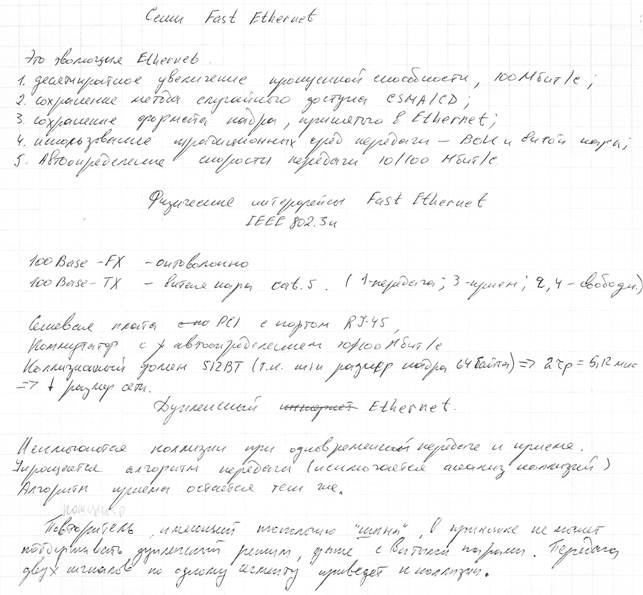 Сети Fast Ethernet
Это эволюция Ethernet.
1. десятикратное увеличение пропускной способности, 100 Мбит/с;
2. сохранение метода случайного доступа CSMA/CD;
3. сохранение формата кадра, принятого в Ethernet;
4. использование традиционных сред передачи – ВОК и витой пары;
5. Автоопределение скорости передачи 10/100 Мбит/с
Физические интерфейсы Fast Ethernet
IEEE 802.3u
100Base-FX – оптоволокно
100Base-TX – витая пара cat.5. (1-передача; 3-прием; 2,4-свободн.)
Сетевая плата PCI с портом RJ-45,
Коммутатор с автоопределением 10/100 Мбит/с
Коллизионный домен 512BT (т.к. min размер кадра 64 байта) => 2τp = 5,12 мкс
=> ↓ размер сети.
Дуплексный Ethernet.
Исключаются коллизии при одновременной передаче и приеме.
Упрощается алгоритм передачи (исключается анализ коллизий)
Алгоритм приема остается тем же.
Повторитель, имеющий топологию "шина", в принципе не может
поддерживать дуплексный режим, даже с витыми парами. Передача
двух сигналов по одному приведет к коллизии.